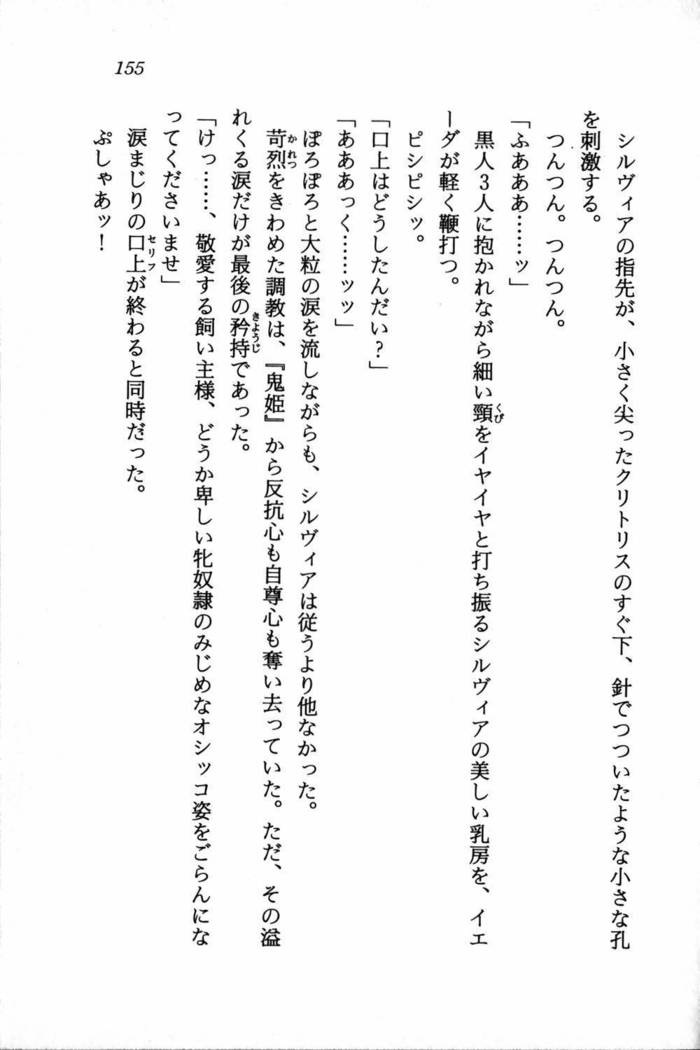 155
シルヴィアの指先が、小さく尖ったクリトリスのすぐ下、針でつついたような小さな孔
を刺激する。
つんつん。つんつん。
「ふあああ……ッ」
黒人3人に抱かれながら細い頸をイヤイヤと打ち振るシルヴィアの美しい乳房を、イエ
ーダが軽く鞭打つ。
ピシピシッ。
「口上はどうしたんだい？」
「あああっく……ッッ」
ぽろぽろと大粒の涙を流しながらも、シルヴィアは従うより他なかった。
苛烈をきわめた調教は、『鬼姫』から反抗心も自尊心も奪い去っていた。ただ、その溢
れくる涙だけが最後の矜持であった。
「けっ……、敬愛する飼い主様、どうか卑しい牝奴隷のみじめなオシッコ姿をごらんにな
ってくださいませ」
涙まじりの口上が終わると同時だった。
ぷしゃあッ！